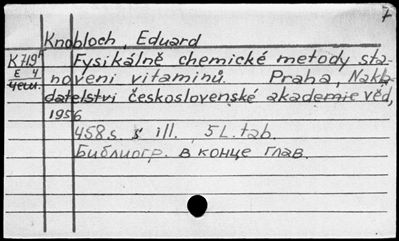 7
Knobloch, Eduard
K719f Fysikálně chemické metody sta-
E 4 novení vitaminů. Praha, Nakla-
чеш. datelství československé akademie věd,
1956
458 s. s ill., 5 L. tab.
Библиогр. в конце глав.